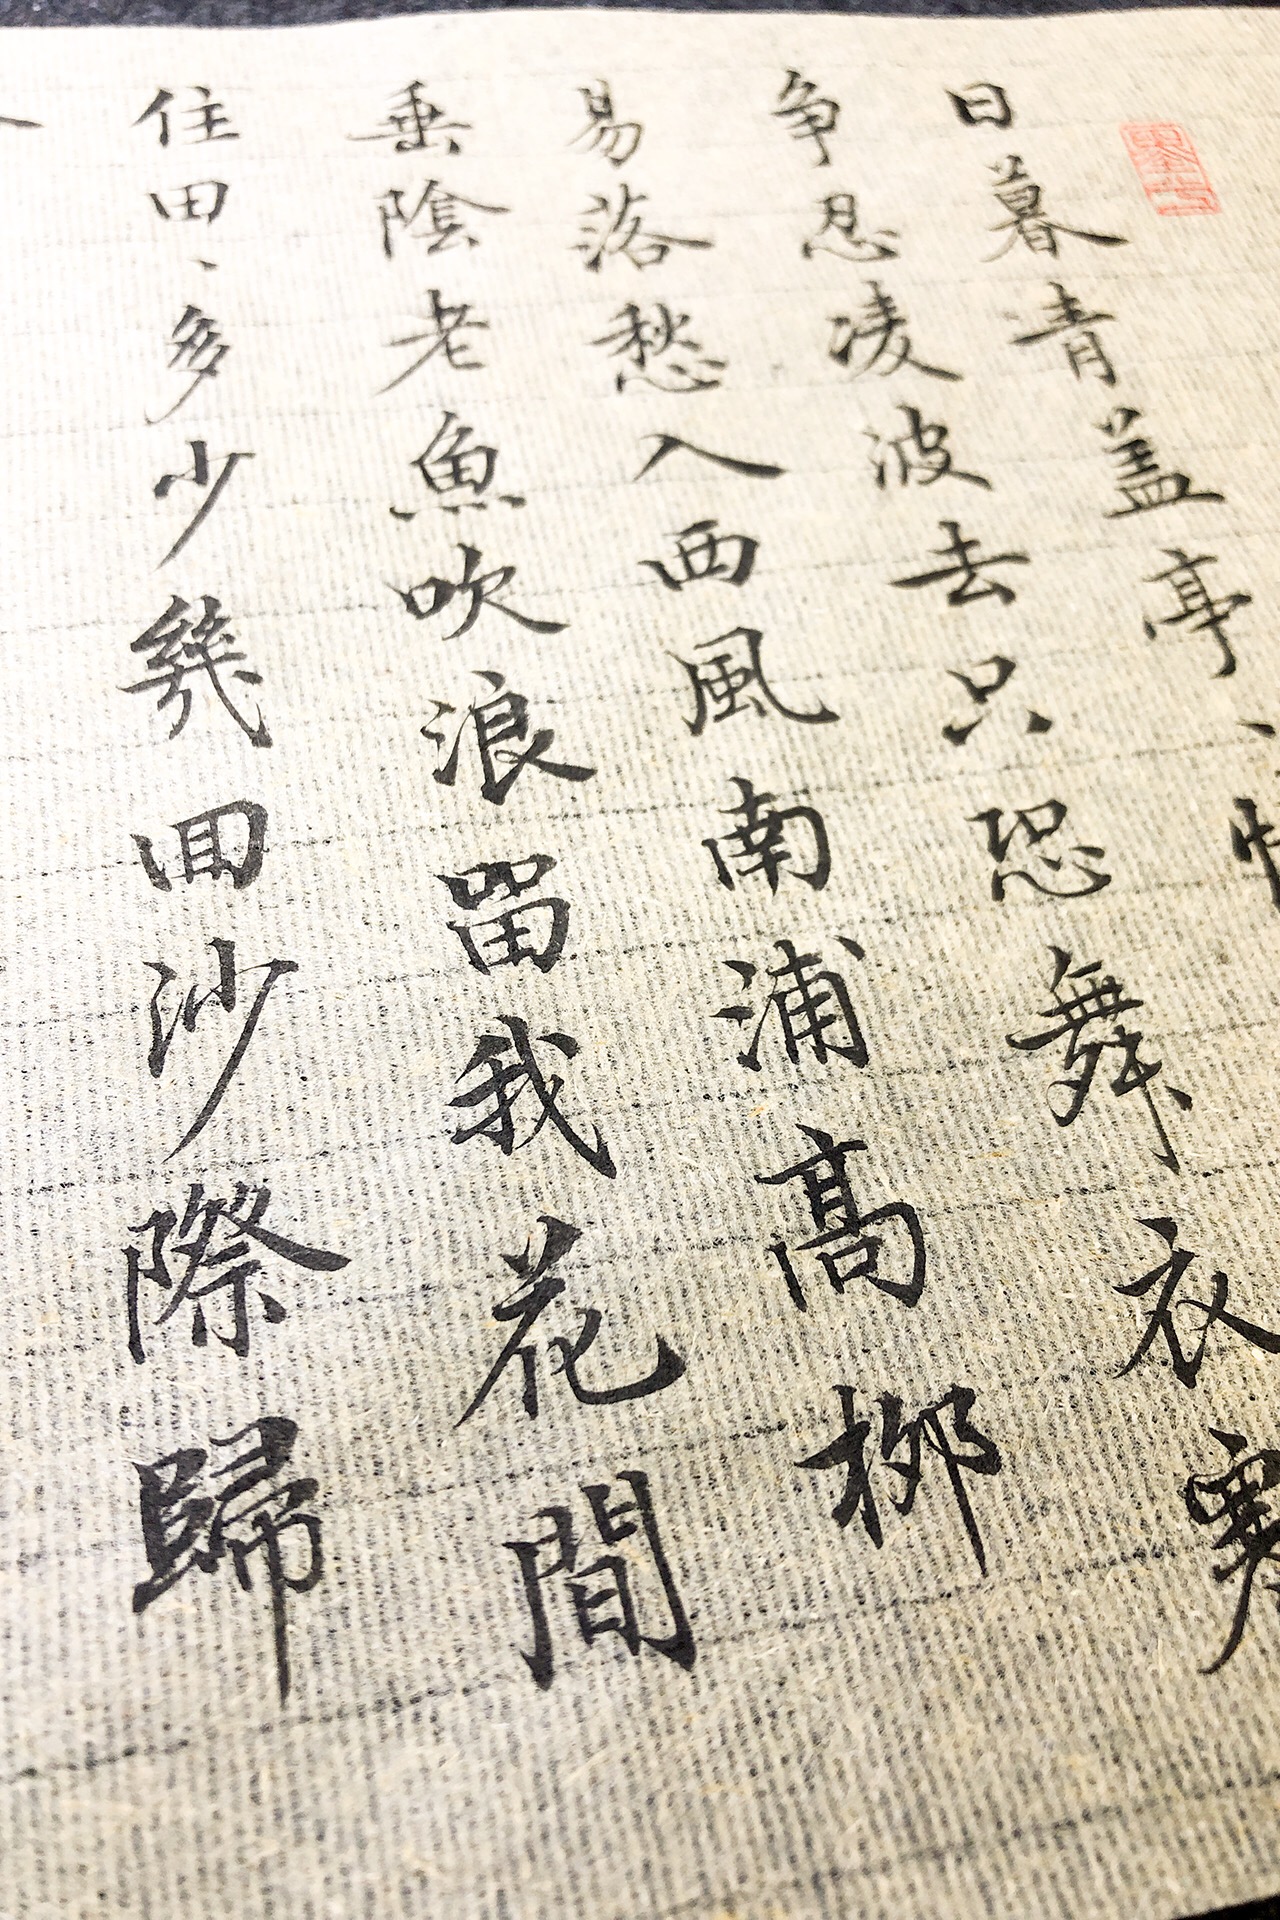 日暮青蓋亭、情
争忍凌波去只恐舞衣寒
易落愁入西風南浦高柳
垂陰老魚吹浪留我花間
住田、多少幾回沙際歸